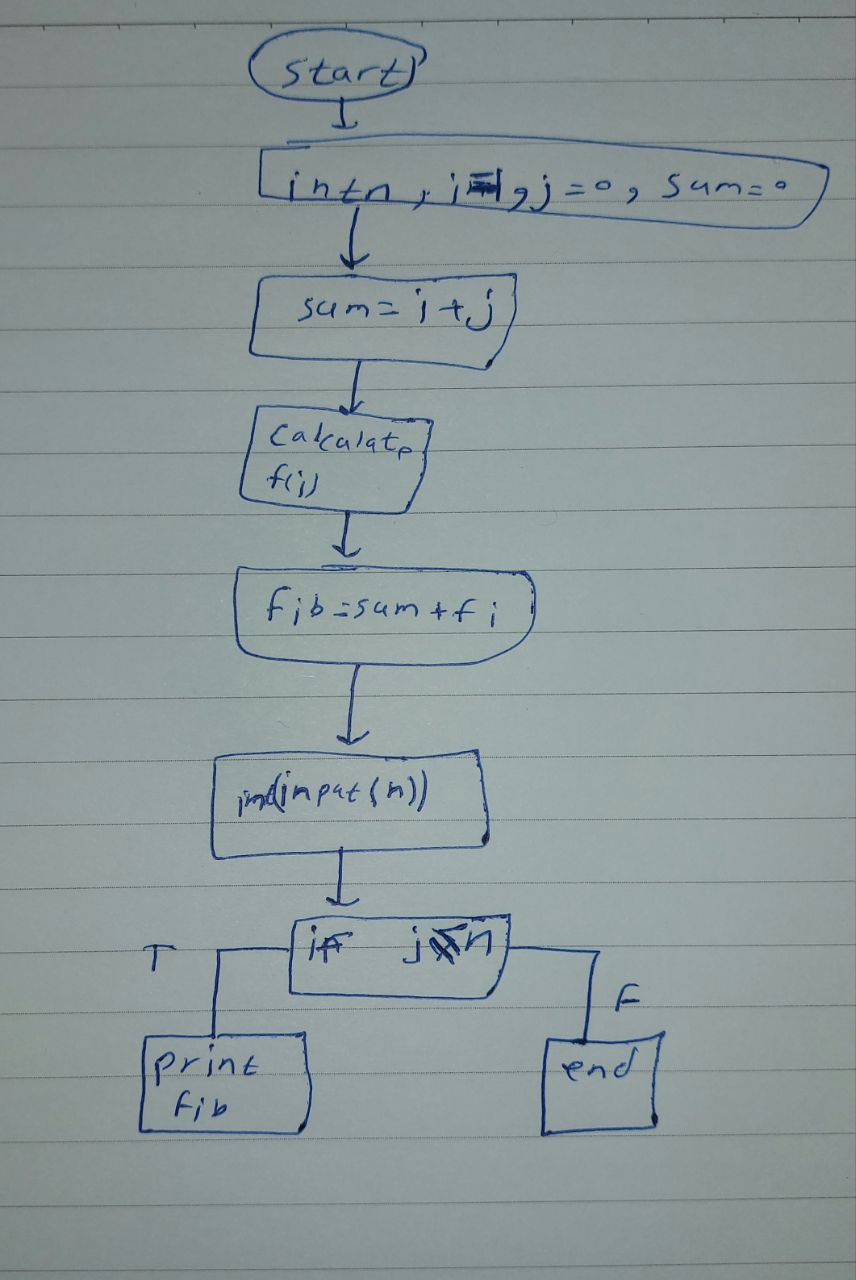 start
int n, i=1, j=0, sum=0
sum = i + j
calculate
f(i)
fib = sum + fi
int(input(n))
if j n
T
F
print
fib
end